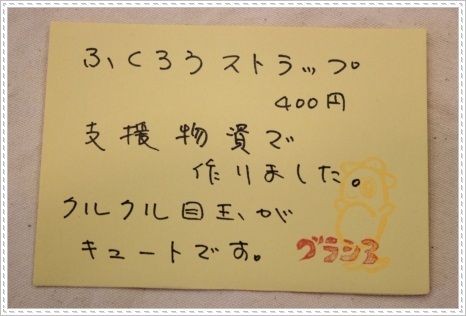 ふくろうストラップ。
400円
支援物資で
作りました。
クルクル目玉が
キュートです。
グランマ